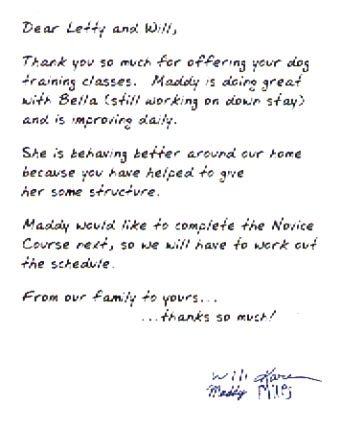 Dear Letty and Will,
Thank you so much for offering your dog
training classes. Maddy is doing great
with Bella (still working on down stay)
and is improving daily.
She is behaving better around our home
because you have helped to give
her some structure.
Maddy would like to complete the Novice
Course next, so we will have to work out
the schedule.
From our family to yours...
...thanks so much!
Will Karen
Maddy Miles